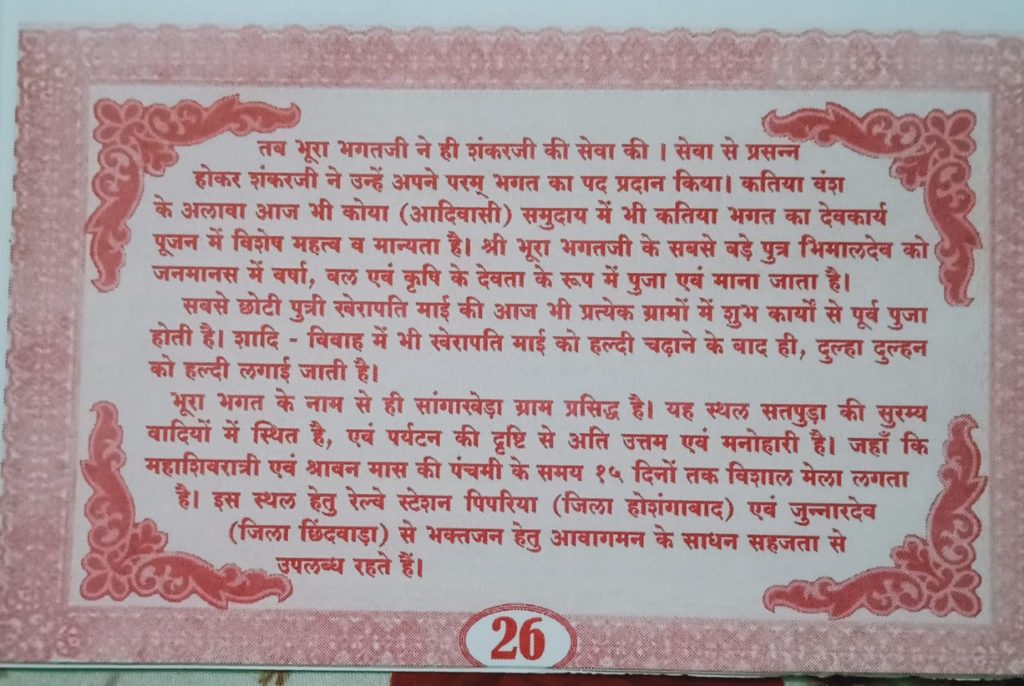 तब भूरा भगतजी ने ही शंकरजी की सेवा की । सेवा से प्रसन्न
होकर शंकरजी ने उन्हें अपने परम् भगत का पद प्रदान किया। कतिया वंश
के अलावा आज भी कोया (आदिवासी) समुदाय में भी कतिया भगत का देवकार्य
पूजन में विशेष महत्व व मान्यता है। श्री भूरा भगतजी के सबसे बड़े पुत्र भिमालदेव को
जनमानस में वर्षा, बल एवं कृषि के देवता के रूप में पुजा एवं माना जाता है।
सबसे छोटी पुत्री खेरापति माई की आज भी प्रत्येक ग्रामों में शुभ कार्यो से पूर्व पुजा
होती है। शादि - विवाह में भी खेरापति माई को हल्दी चढ़ाने के बाद ही, दुल्हा दुल्हन
को हल्दी लगाई जाती है।
भूरा भगत के नाम से ही सांगाखेड़ा ग्राम प्रसिद्ध है। यह स्थल सतपुड़ा की सुरम्य
वादियों में स्थित है, एवं पर्यटन की दृष्टि से अति उत्तम एवं मनोहारी है। जहाँ कि
महाशिवरात्री एवं श्रावन मास की पंचमी के समय १५ दिनों तक विशाल मेला लगता
है। इस स्थल हेतु रेल्वे स्टेशन पिपरिया (जिला होशंगाबाद) एवं जुन्नारदेव
(जिला छिंदवाड़ा) से भक्तजन हेतु आवागमन के साधन सहजता से
उपलब्ध रहते हैं।
26